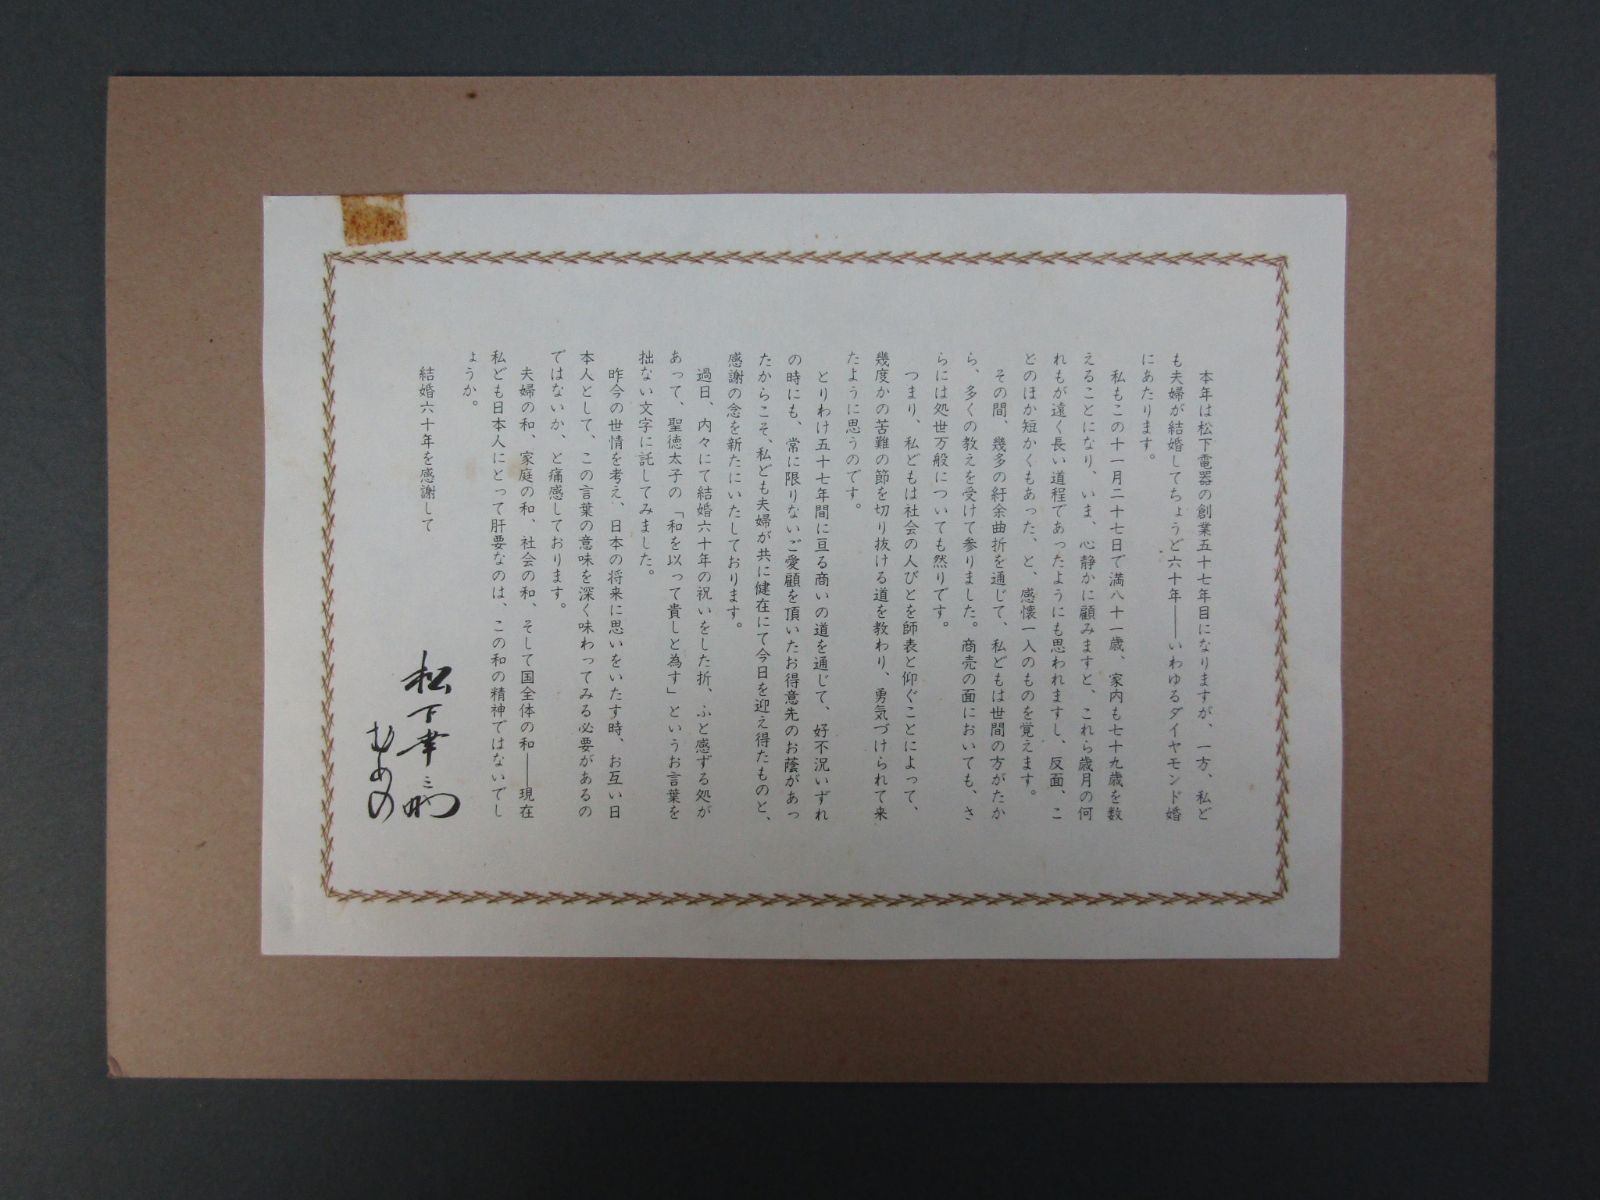 本年は松下電器の創業五十七年目になりますが、一方、私ど
も夫婦が結婚してちょうど六十年――いわゆるダイヤモンド婚
にあたります。
私もこの十一月二十七日で満八十一歳、家内も七十九歳を数
えることになり、いま、心静かに顧みますと、これら歳月の何
れもが遠く長い道程であったようにも思われますし、反面、こ
とのほか短かくもあった、と、感懐一入のものを覚えます。
その間、幾多の紆余曲折を通じて、私どもは世間の方がたか
ら、多くの教えを受けて参りました。商売の面においても、さ
らには処世万般についても然りです。
つまり、私どもは社会の人びとを師表と仰ぐことによって、
幾度かの苦難の節を切り抜ける道を教わり、勇気づけられて来
たように思うのです。
とりわけ五十七年間に亘る商いの道を通じて、好不況いずれ
の時にも、常に限りないご愛顧を頂いたお得意先のお蔭があっ
たからこそ、私ども夫婦が共に健在にて今日を迎え得たものと、
感謝の念を新たにいたしております。
過日、内々にて結婚六十年の祝いをした折、ふと感ずる処が
あって、聖徳太子の「和を以って貴しと為す」というお言葉を
拙ない文字に託してみました。
昨今の世情を考え、日本の将来に思いをいたす時、お互い日
本人として、この言葉の意味を深く味わってみる必要があるの
ではないか、と痛感しております。
夫婦の和、家庭の和、社会の和、そして国全体の和――現在
私ども日本人にとって肝要なのは、この和の精神ではないでし
ょうか。
結婚六十年を感謝して
松下幸之助
むめの